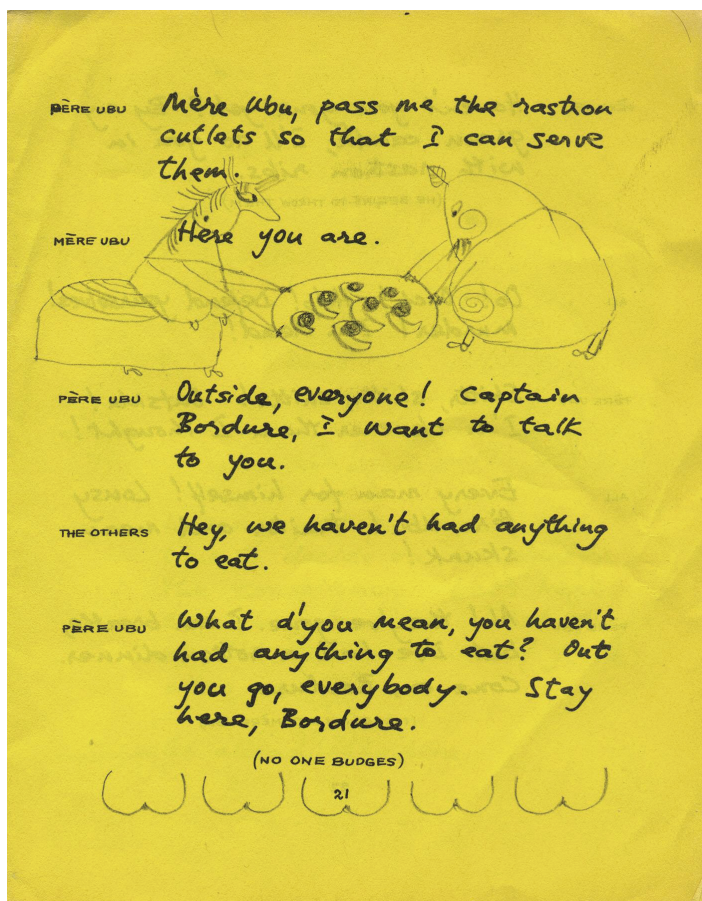 PÈRE UBU Mère Ubu, pass me the rastron
cutlets so that I can serve
them.
MÈRE UBU Here you are.
PÈRE UBU Outside, everyone! Captain
Bordure, I want to talk
to you.
THE OTHERS Hey, we haven't had anything
to eat.
PÈRE UBU What d'you mean, you haven't
had anything to eat? Out
you go, everybody. Stay
here, Bordure.
(NO ONE BUDGES)
21